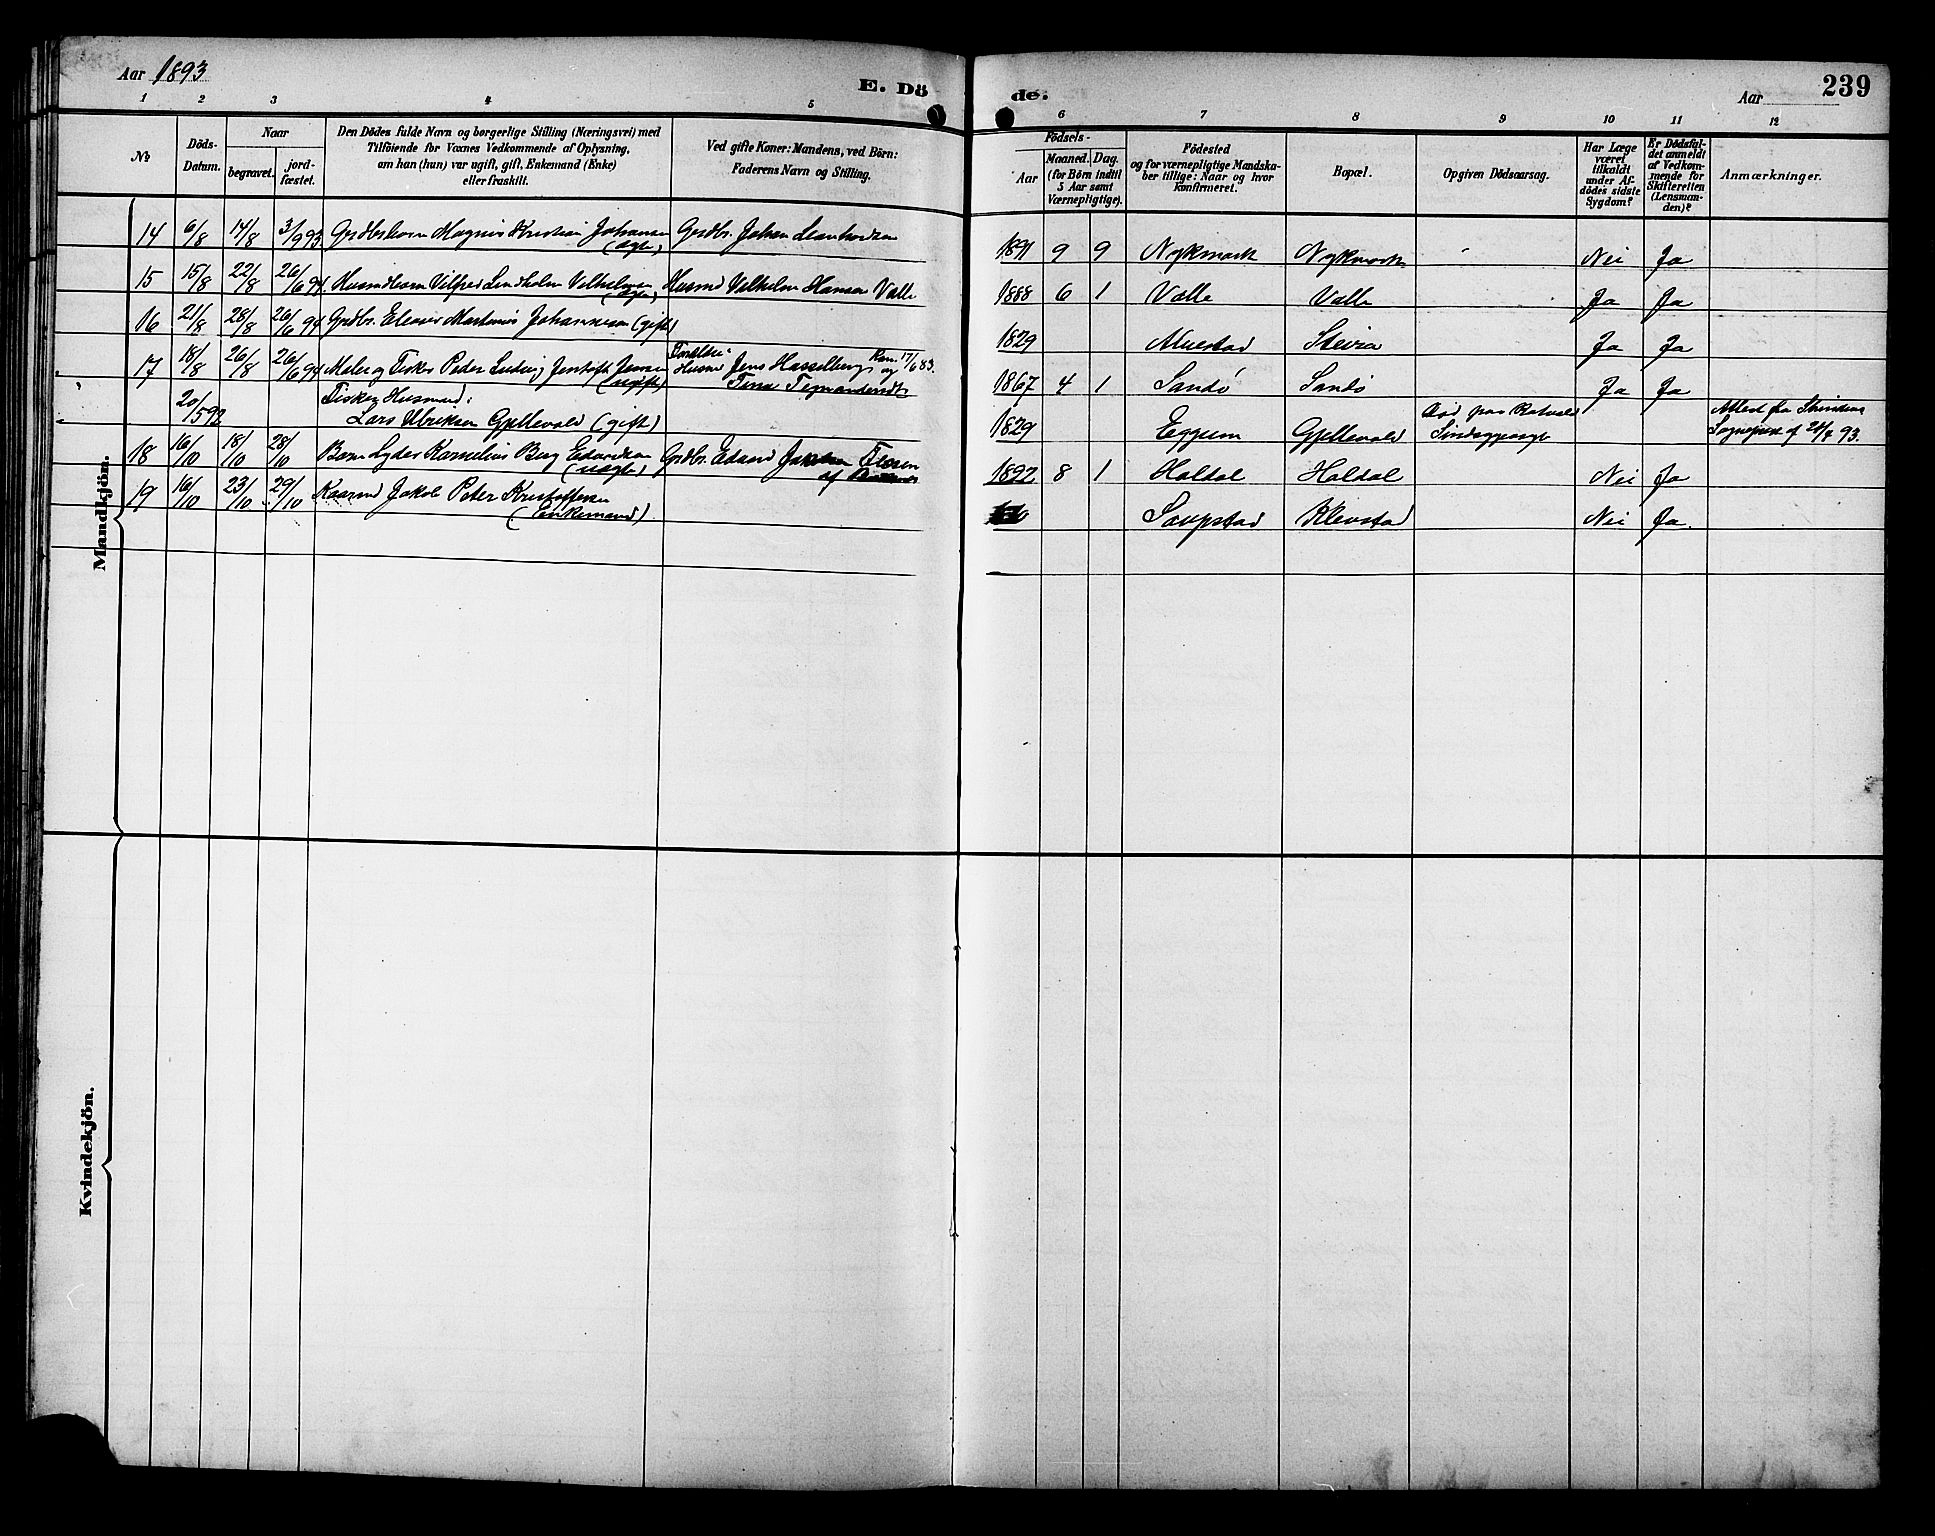 Aar 1893
E. Dö
de.
Aar
239
1 2 3 4 5 6 7 8 9 10 11 12
No
Döds-
Datum.
Naar
begravet.
jord-
fæstet.
Den Dödes fulde Navn og borgerlige Stilling (Næringsvei) med
Tilföiende for Voxnes Vedkommende af Oplysning,
om han (hun) var ugift, gift, Enkemand (Enke)
eller fraskilt.
Ved gifte Koner: Mandens, ved Börn:
Faderens Navn og Stilling.
Födsels-
Aar
Maaned. Dag.
(for Börn indtil
5 Aar samt
Værnepligtige).
Födested
og for værnepligtige Mandska-
ber tillige: Naar og hvor
konfirmeret.
Bopæl.
Opgiven Dödsaarsag.
Har Læge
været
tilkaldt
under Af-
dödes sidste
Sygdom?
Er Dödsfal-
det anmeldt
af Vedkom-
mende for
Skifteretten
(Lensman-
den)?
Anmærkninger.
Mandkjön.
14 6/8 14/8 3/9 93 Grdbrbarn Magnus Kristian Johansen (ægte) Grdbr. Johan Leonhardsen 1891 9 9 Nykmark Nykmark Nei Ja
15 15/8 22/8 26/6 94 Husmdbarn Vilfred Lindholm Vilhelmsen (ægte) Husmd Vilhelm Hansen Valle 1888 6 1 Valle Valle Ja Ja
16 21/8 28/8 26/6 94 Grdbr. Eleaser Martinus Johannesen (gift) 1829 Steira Ja Ja
17 18/8 26/8 26/6 94 Maler og Fisker Peder Ludvig Jentoft Jensen (ugift) Forældre: Husmd Jens Hasselberg og Kon. 17/6 83. 1867 4 1 Sandö Sandö Ja Ja
" 20/5 92 Fisker Husmand:
Lars Ulriksen Gjellevold (gift) 1829 Eggum Gjellevold Död paa Rotvold Sindsygeasyl Attest fra Strindens Sognepræst af 24/7 93.
18 16/10 18/10 28/10 Barn Lyder Kornelius Berg Edvardsen (uægte) Grdbr. Edvard Jakobsen 1892 8 1 Haldal Haldal Nei Ja
19 16/10 23/10 29/10 Kaarmd Jakob Peter Kristoffersen
(Enkemand) Saupstad Klevstad Nei Ja.
Kvindekjön.